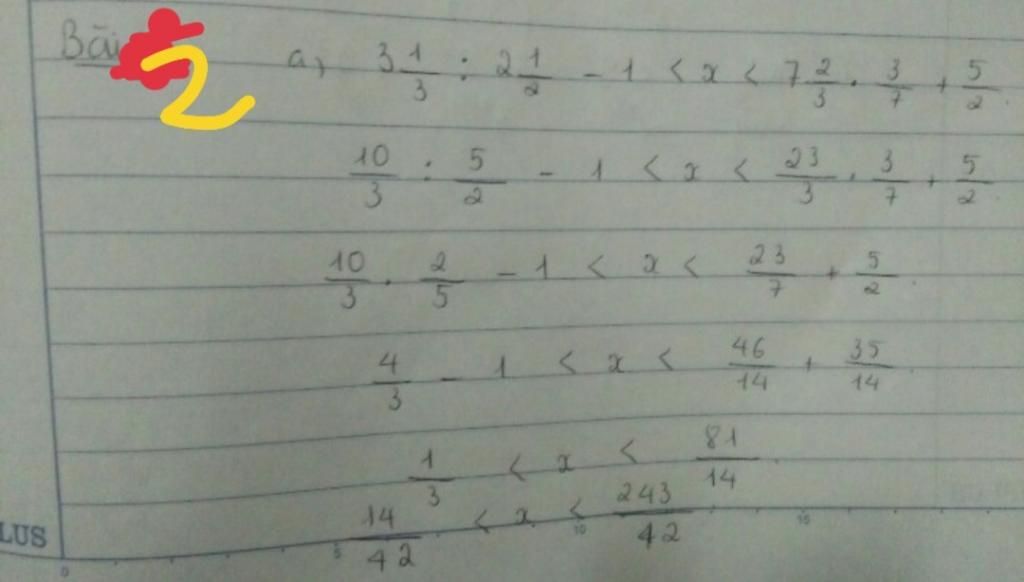 Bài 2 a, 3 1/3 : 2 1/2 - 1 < x < 7 2/3 . 3/7 + 5/2
10/3 : 5/2 - 1 < x < 23/3 . 3/7 + 5/2
10/3 . 2/5 - 1 < x < 23/7 + 5/2
4/3 - 1 < x < 46/14 + 35/14
1/3 < x < 81/14
14/42 < x < 243/42
LUS
0 5 10 15